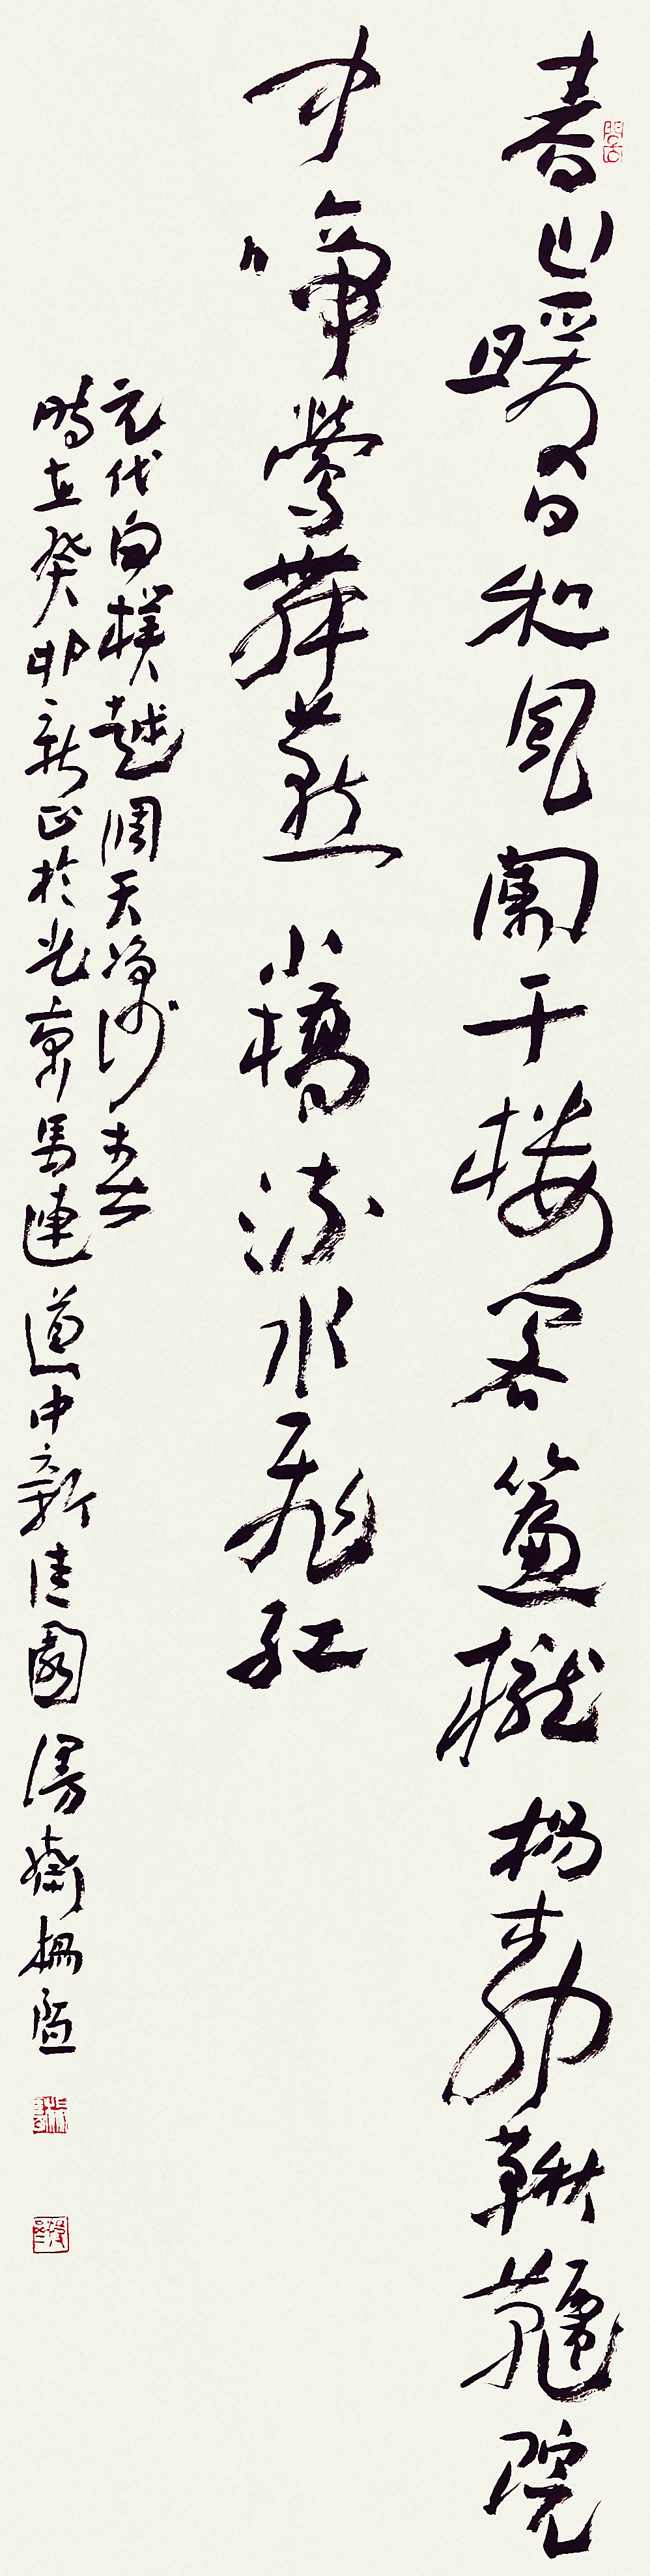 春山暖日和風闌干樓閣簾櫳楊柳鞦韆院
中啼鶯舞燕小橋流水飛紅
元代白樸越調天淨沙春
時在癸卯新正於北京馬連道中新佳園漫齋楊